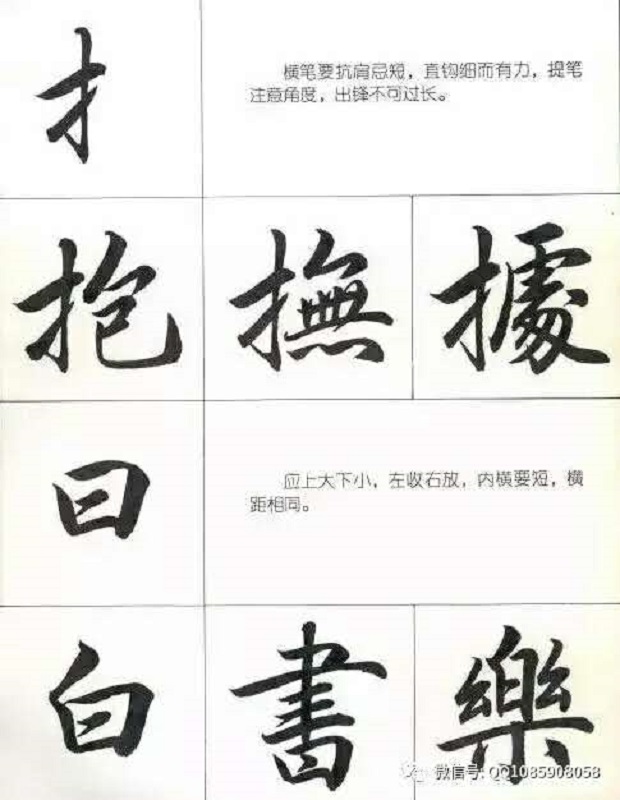 扌
横笔要抗肩忌短，直钩细而有力，提笔
注意角度，出锋不可过长。
抱 撫 據
曰
应上大下小，左收右放，内横要短，横
距相同。
白 書 樂
微信号: QQ1085908058